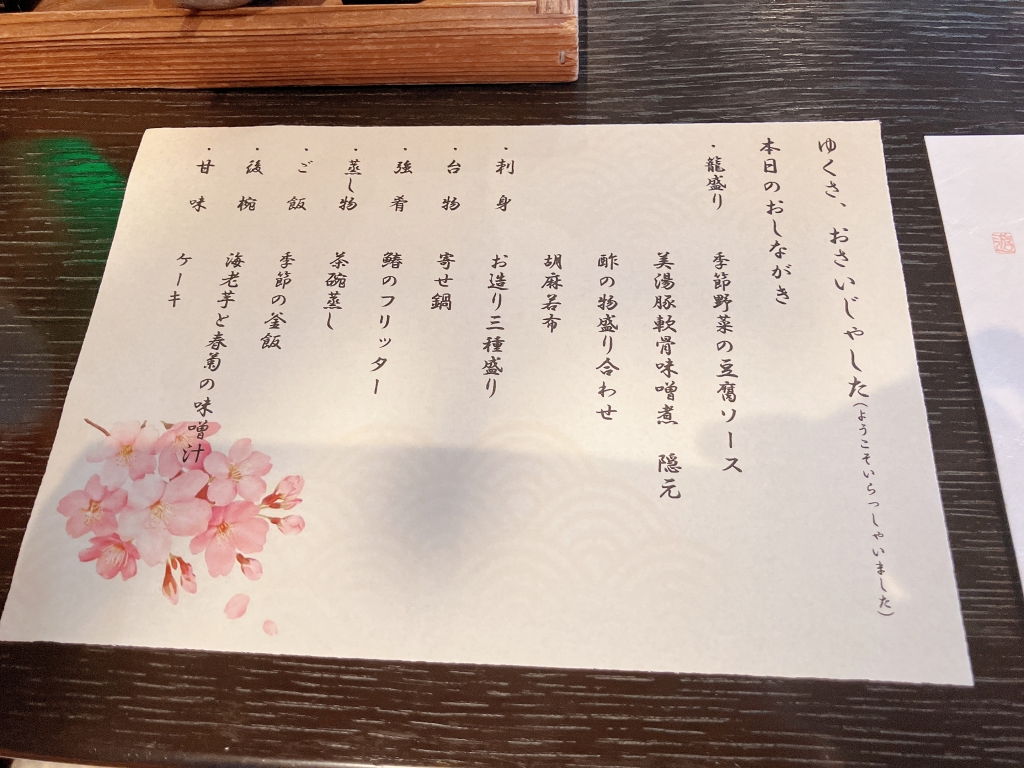 ゆくさ、おさいじゃした(ようこそいらっしゃいました)
本日のおしながき
・籠盛り 季節野菜の豆腐ソース
美湯豚軟骨味噌煮 隠元
酢の物盛り合わせ
胡麻若布
・刺身 お造り三種盛り
・台物 寄せ鍋
・強肴 鰆のフリッター
・蒸し物 茶碗蒸し
・ご飯 季節の釜飯
・後椀 海老芋と春菊の味噌汁
・甘味 ケーキ